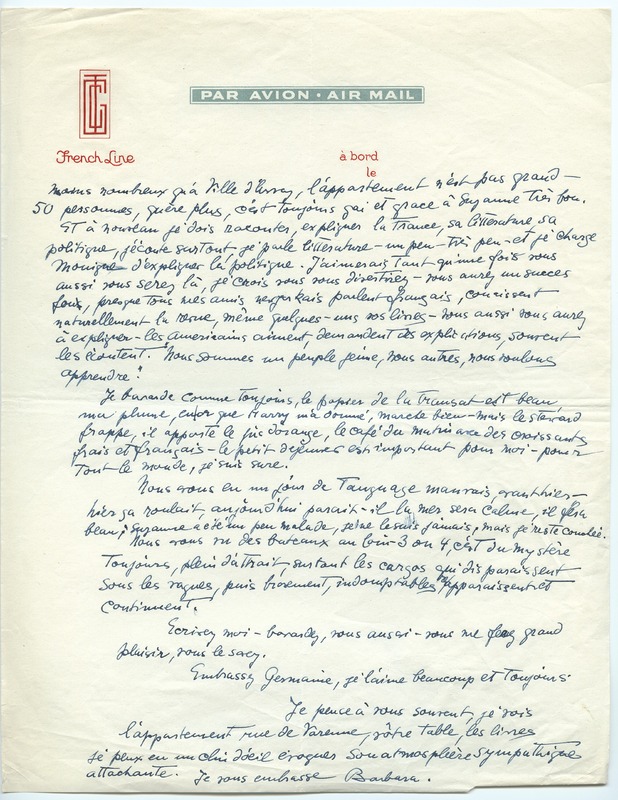 PAR AVION • AIR MAIL
French Line
à bord
le
moins nombreux qu'à Ville d'Avray, l'appartement n'est pas grand –
50 personnes, guère plus, c'est toujours gai et grace à Suzanne très bon.
Et à nouveau je dois raconter, expliquer la France, sa littérature sa
politique, j'écoute surtout je parle littérature – un peu – très peu – et je charge
Monique d'expliquer la politique. J'aimerais tant qu'une fois vous
aussi vous serez là, je crois vous vous divertirez – vous aurez un succès
fou, presque tous mes amis newyorkais parlent français, conaissent
naturellement la revue, même quelques-uns vos livres – vous aussi vous aurez
à expliquer – les américains aiment, demandent des explications, souvent
les écoutent. "Nous sommes un peuple jeune, nous autres, nous voulons
apprendre"
Je bavarde comme toujours, le papier de la transat est beau
ma plume, en or que Harry m'a donné, marche bien – mais le steward
frappe, il apporte le jus d'orange, le café du matin avec des croissants
frais et français – le petit déjeuner est important pour moi – pour
tout le monde, je suis sure.
Nous avons eu un jour de tanguage mauvais, avant hier –
hier ça roulait, aujourd'hui parait-il la mer sera calme, il fera
beau; Suzanne a été un peu malade, je ne le suis jamais, mais je reste couchée.
Nous avons vu des bateaux au loin – 3 ou 4, c'est du mystère
toujours, plein d'attrait, surtout les cargos qui disparaissent
sous les vagues, puis bravement, indomptables réapparaissent et
continuent.
Ecrivez moi – bavardez, vous aussi – vous me ferez grand
plaisir, vous le savez.
Embrassez Germaine, je l'aime beaucoup et toujours.
Je pense à vous souvent, je vois
l'appartement rue de Varenne, vôtre table, les livres
je peux en un clin d'oeil évoquer son atmosphère sympathique
attachante. Je vous embrasse Barbara.